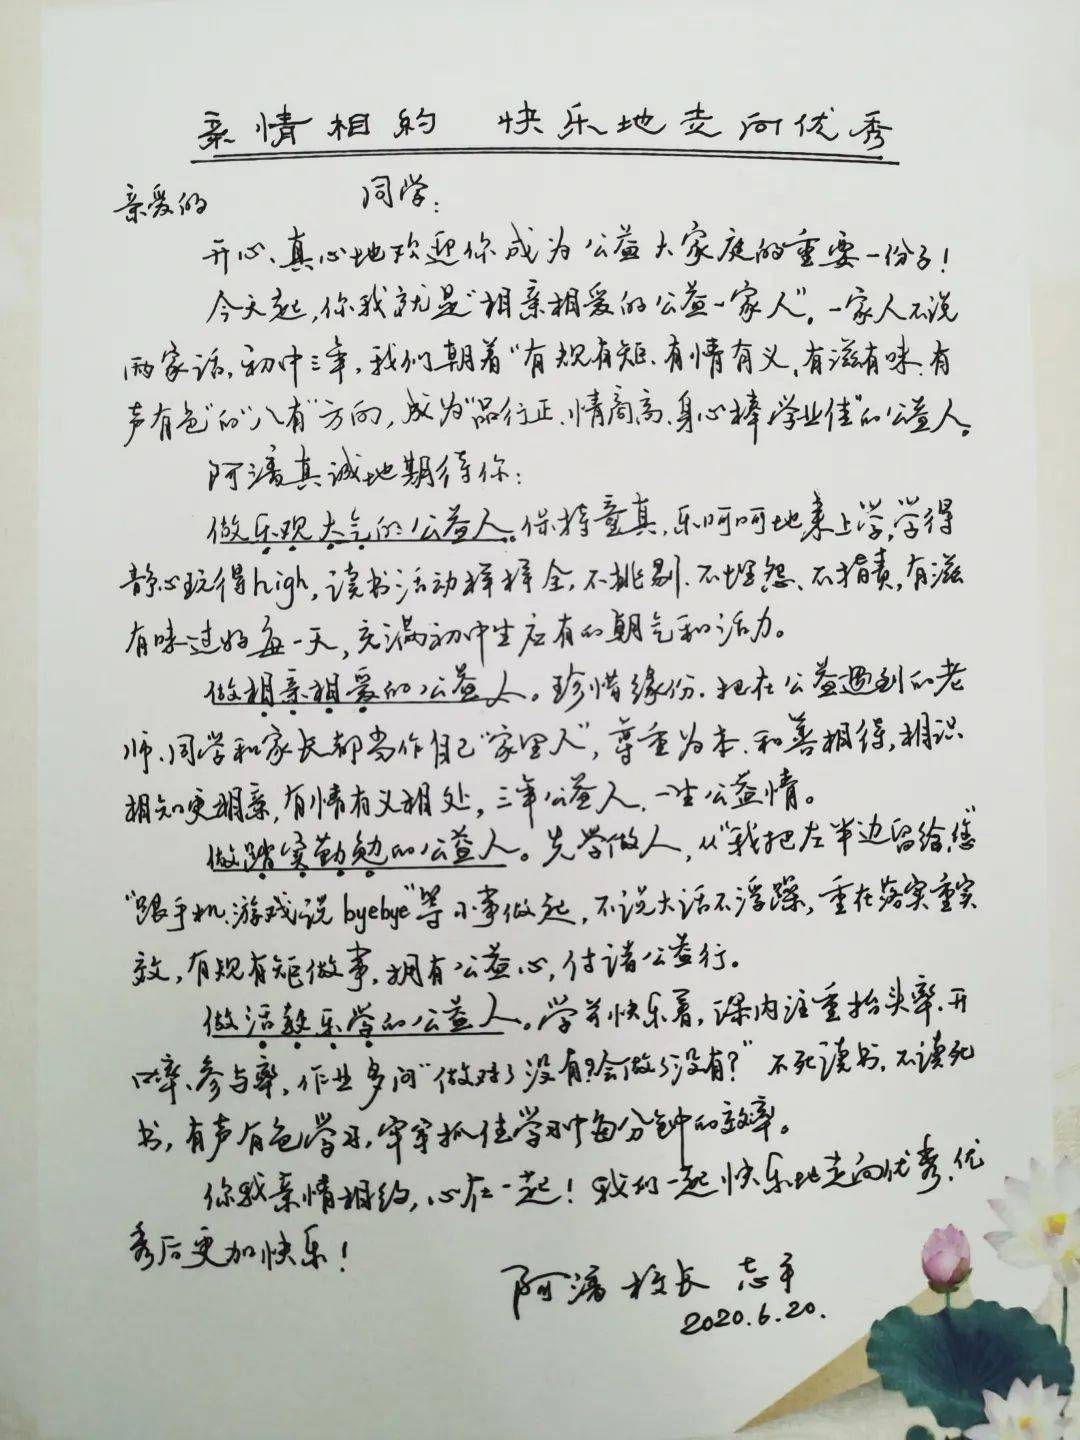 亲情相约 快乐地走向优秀
亲爱的 同学:
开心、真心地欢迎你成为公益大家庭的重要一份子!
今天起,你我就是“相亲相爱的公益一家人”。一家人不说
两家话,初中三年,我们朝着“有规有矩、有情有义、有滋有味、有
声有色”的“八有”方向,成为“品行正、情商高、身心棒、学业佳”的公益人。
阿濤真诚地期待你:
做乐观大气的公益人。保持童真,乐呵呵地来上学,学得
静心玩得high,读书活动样样全,不挑剔、不埋怨、不指责,有滋
有味过好每一天,充满初中生应有的朝气和活力。
做相亲相爱的公益人。珍惜缘份,把在公益遇到的老
师、同学和家长都当作自己“家里人”,尊重为本、和善相得,相识
相知更相亲,有情有义相处,三年公益人,一生公益情。
做踏实勤勉的公益人。先学做人,从“我把左半边留给您”
“跟手机、游戏说byebye”等小事做起,不说大话不浮躁,重在落实重实
效,有规有矩做事,拥有公益心,付诸公益行。
做活教乐学的公益人。学并快乐着,课内注重抬头率、开
口率、参与率,作业多问“做对了没有?会做了没有?”不死读书,不读死
书,有声有色学习,牢牢抓住学习中每分钟的效率。
你我亲情相约,心在一起!我们一起快乐地走向优秀,优
秀后更加快乐!
阿濤校长 志平
2020.6.20.